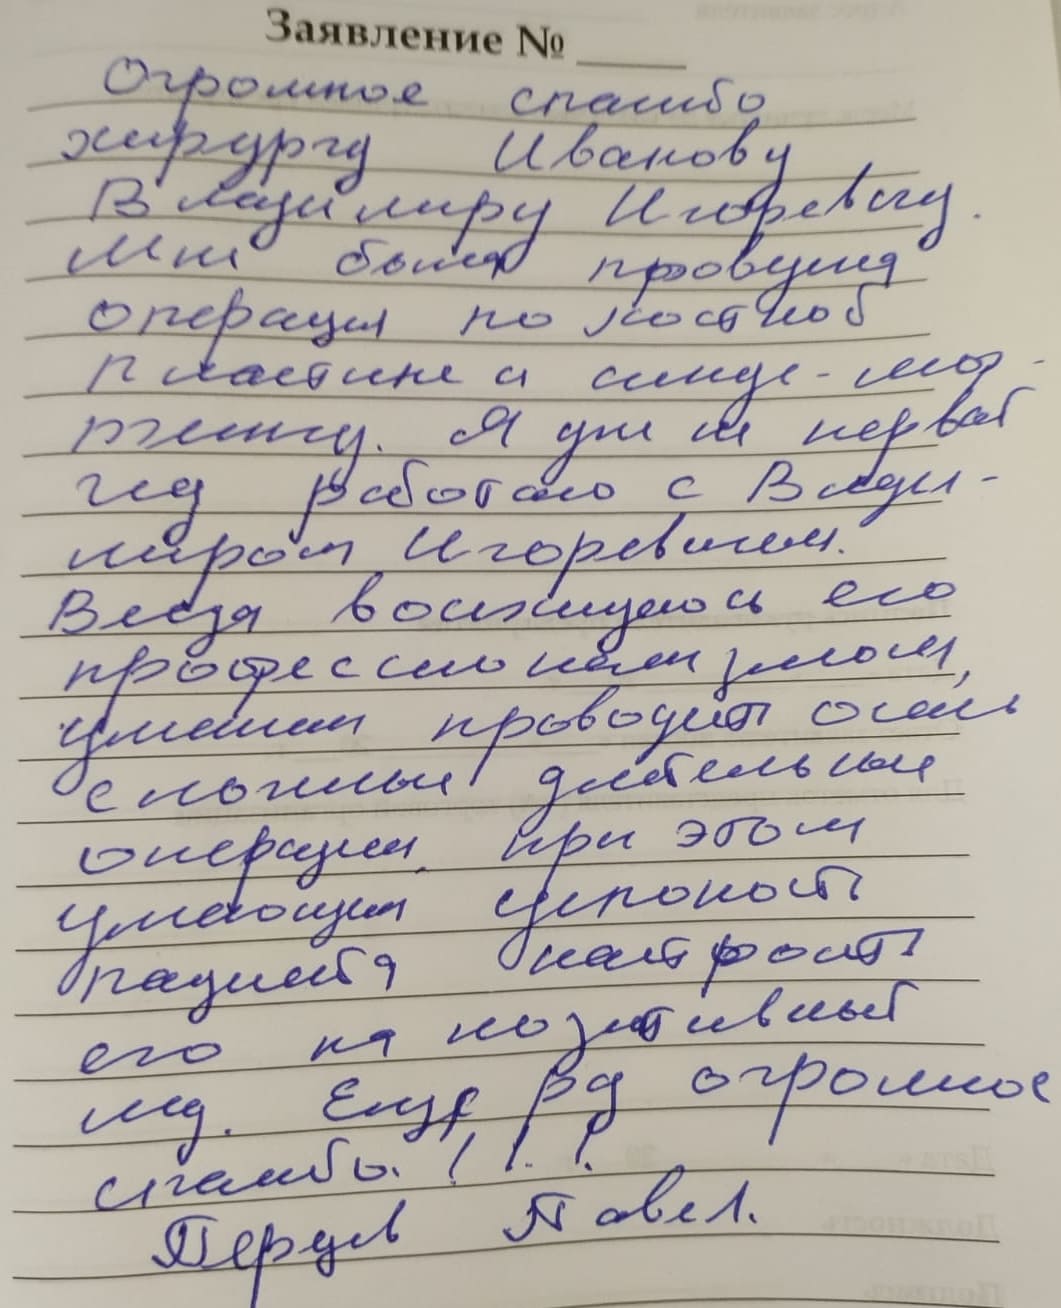 Заявление № ____
Огромное спасибо
хирургу Иванову
Владимиру Игоревичу.
Мне была проведена
операция по костной
пластике и синус-лиф-
тингу. Я уже не первый
год работаю с Влади-
миром Игоревичем.
Всегда восхищаюсь его
профессионализмом,
умением проводить очень
сложные длительные
операции, при этом
умеющим успокоить
пациента, настроить
его на позитивный
лад. Ещё раз огромное
спасибо!!!
Павел.